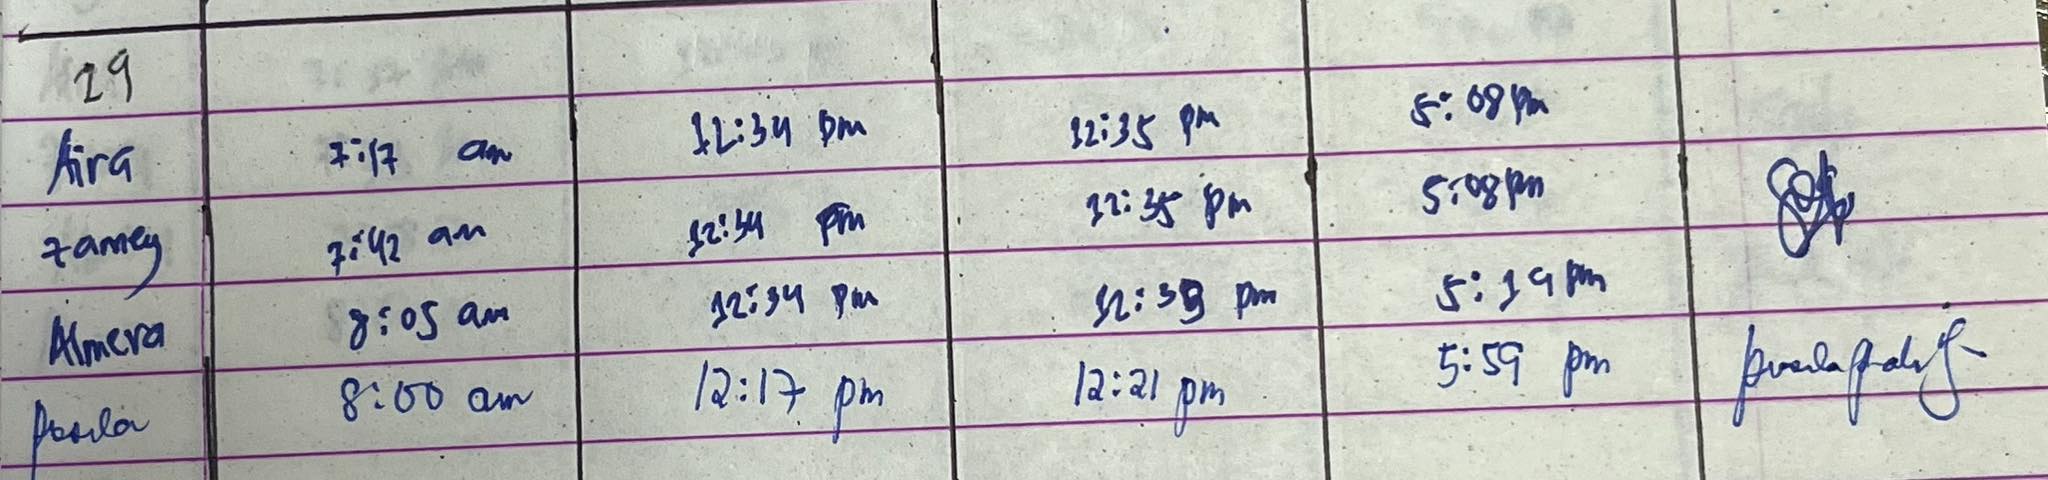 29
Aira 7:17 am 12:34 pm 12:35 pm 5:08 pm
zamey 7:42 am 12:34 pm 12:35 pm 5:08 pm
Almera 8:05 am 12:34 pm 12:39 pm 5:19 pm
8:00 am 12:17 pm 12:21 pm 5:59 pm